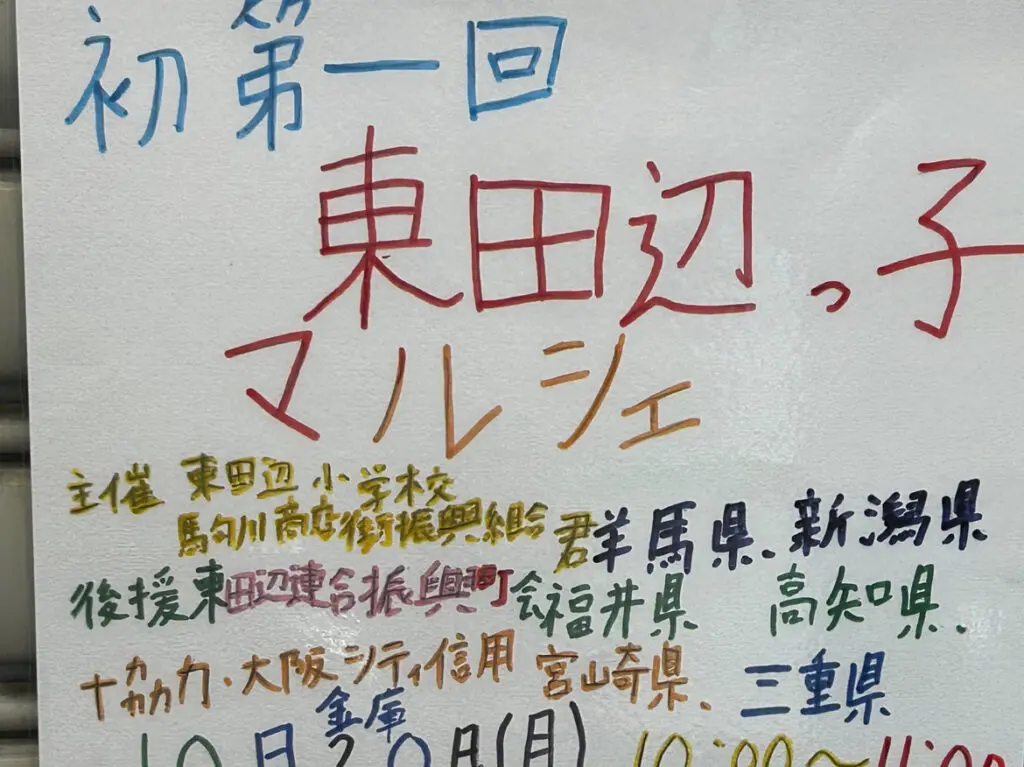 初第一回
東田辺っ子
マルシェ
主催 東田辺小学校
駒川商店街振興組合 群馬県、新潟県
後援東田辺連合振興町会福井県 高知県、
協力・大阪シティ信用 宮崎県、三重県
金庫
10月20日(月) 10:00〜11:00